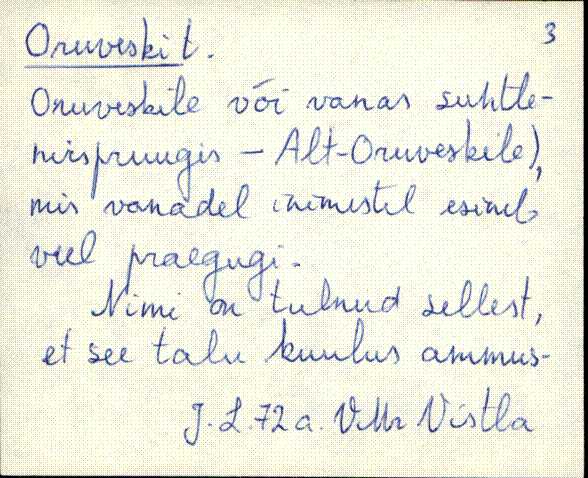 Oruveski t. 3
Oruveskile või vanas suhtle-
nispruugis – Alt-Oruveskile),
mis vanadel inimestel esineb
veel praegugi.
Nimi on tulnud sellest,
et see talu kuulus ammus-
J. L. 72 a. VMr Vistla